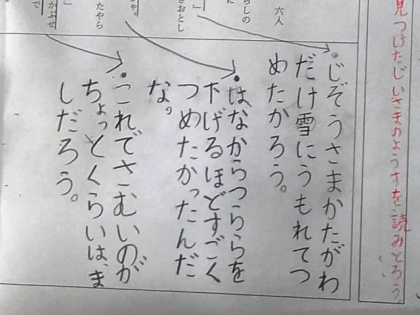 見つけたじいさまのようすを読みとろう
・じぞうさまかたがわ
だけ雪にうもれてつ
めたかろう。
・はなからつららを
下げるほどすごく
つめたかったんだ
な。
・これでさむいのが
ちょっとくらいは、ま
しだろう。
六人